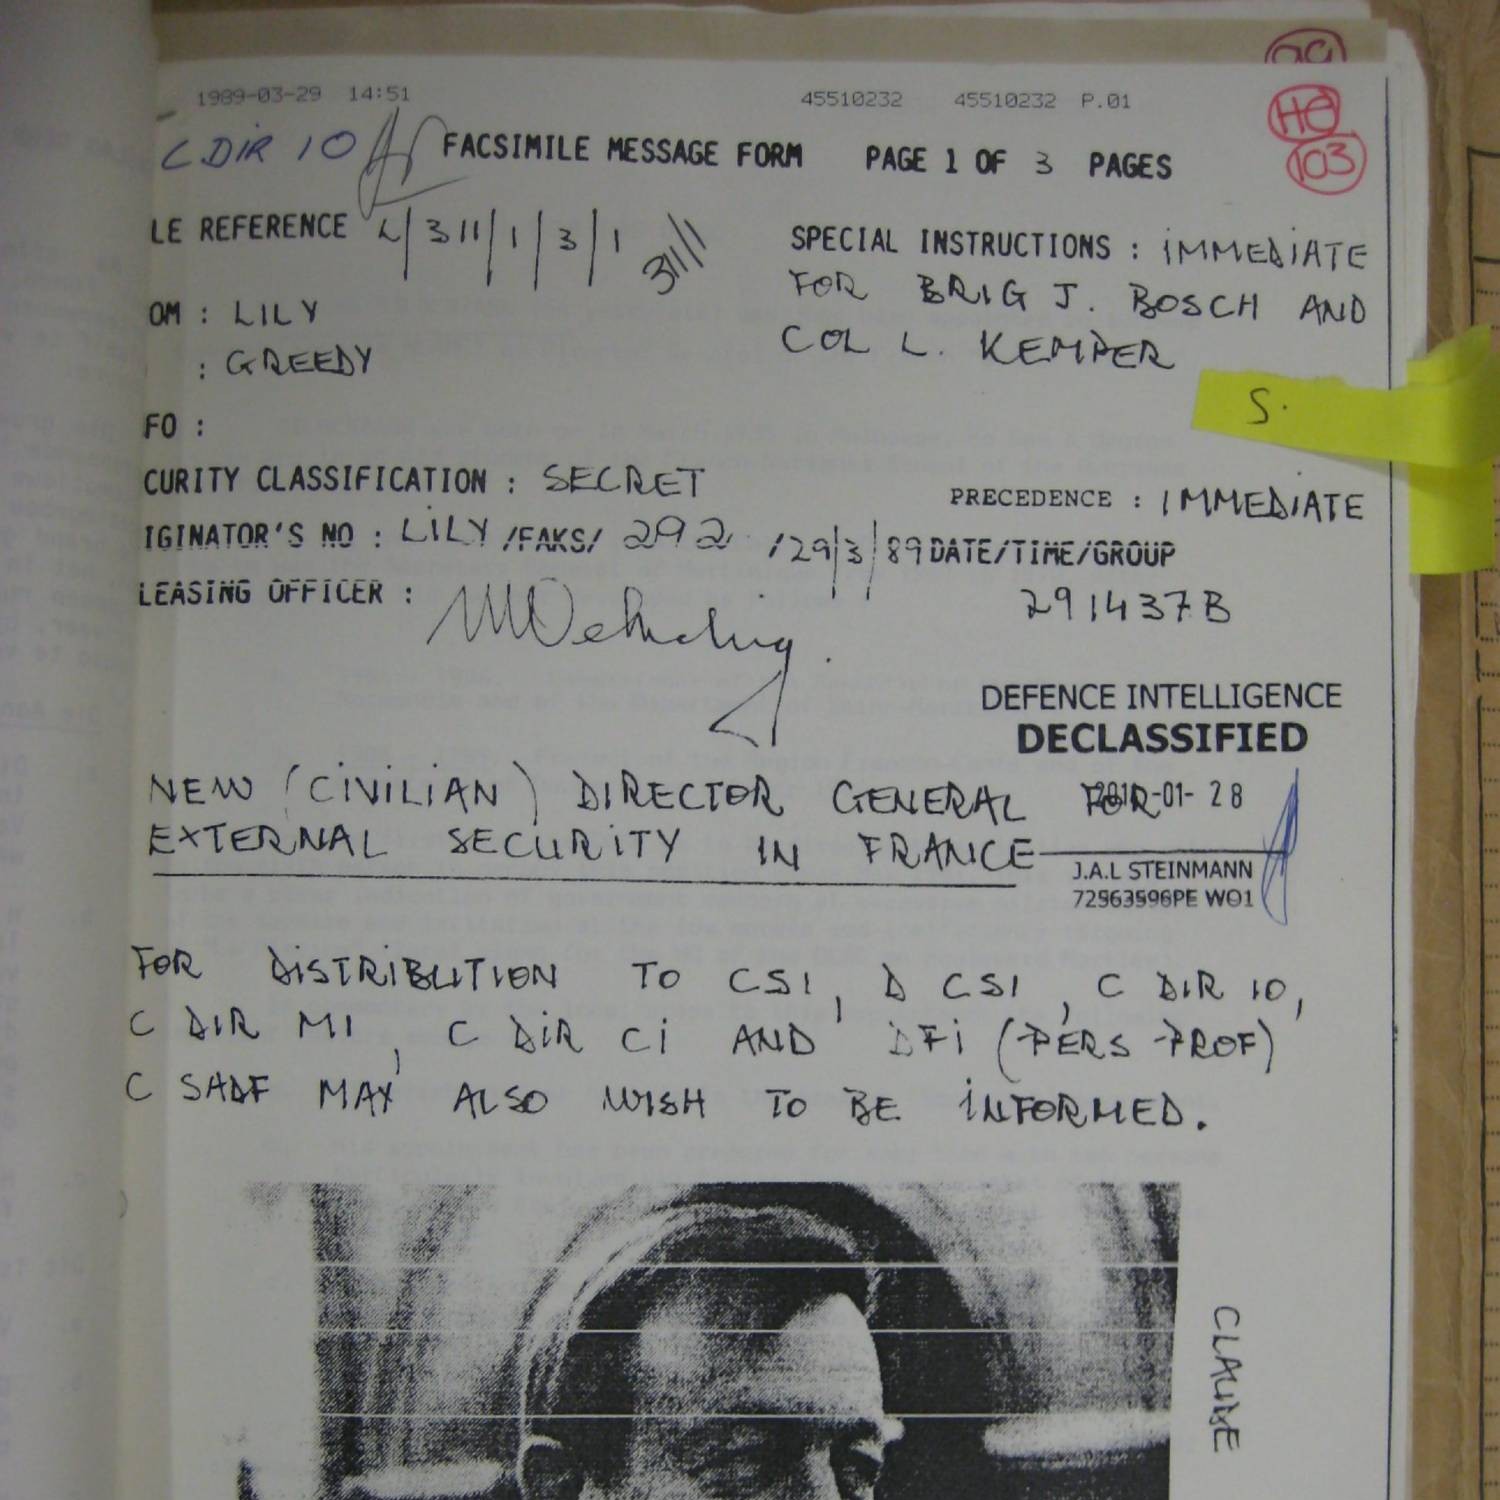 1989-03-29 14:51 45510232 45510232 P.01
C DIR 10 FACSIMILE MESSAGE FORM PAGE 1 OF 3 PAGES
HO
103
LE REFERENCE 4/311/1/3/1 311/1 SPECIAL INSTRUCTIONS : IMMEDIATE
FOR BRIG J. BOSCH AND
COL L. KEMPER
OM : LILY
: GREEDY
S.
FO :
CURITY CLASSIFICATION : SECRET PRECEDENCE : IMMEDIATE
IGINATOR'S NO : LILY /FAKS/ 292 /29/3/89 DATE/TIME/GROUP
LEASING OFFICER : 291437B
DEFENCE INTELLIGENCE
DECLASSIFIED
NEW (CIVILIAN) DIRECTOR GENERAL FOR -01- 28
EXTERNAL SECURITY IN FRANCE
J.A.L STEINMANN
72563596PE WO1
FOR DISTRIBUTION TO CSI, D CSI, C DIR 10,
C DIR MI, C DIR CI AND DFI (PERS-PROF)
C SADF MAY ALSO WISH TO BE INFORMED.
CLAUDE